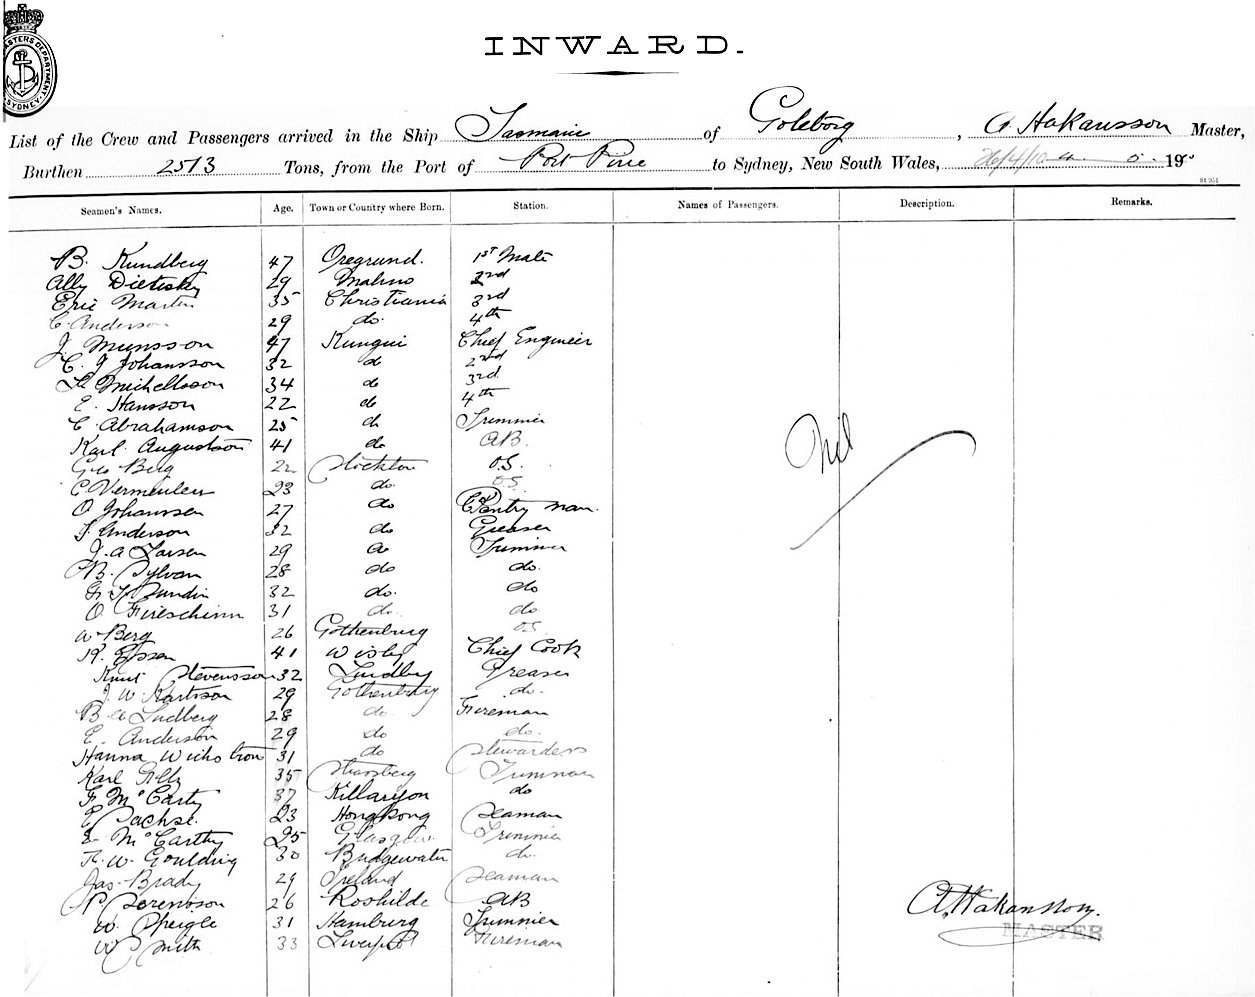 MASTERS DEPARTMENT. SYDNEY.
INWARD.
List of the Crew and Passengers arrived in the Ship Tasmanic of Goteborg, A. Hakansson Master,
Burthen 2513 Tons, from the Port of Port Pirie to Sydney, New South Wales, 26/4/10 19
Seamen's Names. Age. Town or Country where Born. Station. Names of Passengers. Description. Remarks.
B. Kundberg 47 Oregrund. 1st Mate
Ally 29 Malmo 2nd
Eric Martin 35 Christiania 3rd
C Anderson 29 do. 4th
J. Munsson 47 Kungui Chief Engineer
C. J Johansson 32 do 2nd
Michellsson 34 do 3rd.
E. Hansson 22 do 4th
C. Abrahamson 25 do Trimmer
Karl Augustson 41 do AB.
Geo Berg 22 Stockton O.S.
C Vermeulen 23 do. O.S.
O Johanssen 27 do Pantry man.
F. Anderson 32 do Greaser
J. A Larsen 29 do Trimmer
B. Sylvan 28 do do.
Sundin 32 do. do
O. 31 do. do
W Berg 26 Gothenburg O.S
41 Wisby Chief Cook
Knut Stevensson 32 Lundby Greaser
J. W. Karlsson 29 Gothenburg do.
B A Lndberg 28 do. Fireman
E. Anderson 29 do do.
Hanna Wickstrom 31 do Stewardess
Karl 35 Strasberg Trimmer
F McCarty 37 Killarson do
E Sachse. 23 Hongkong Seaman
E McCarthy 25 Glasgow Trimmer
R. W. Goulding 30 Bridgewater do.
Jas. Brady 29 Ireland Seaman
P Sorensson 26 Roskilde AB
W. Speigle 31 Hamburg Trimmer
W Smith 33 Liverpol Fireman
Nil
A. Hakansson.
MASTER